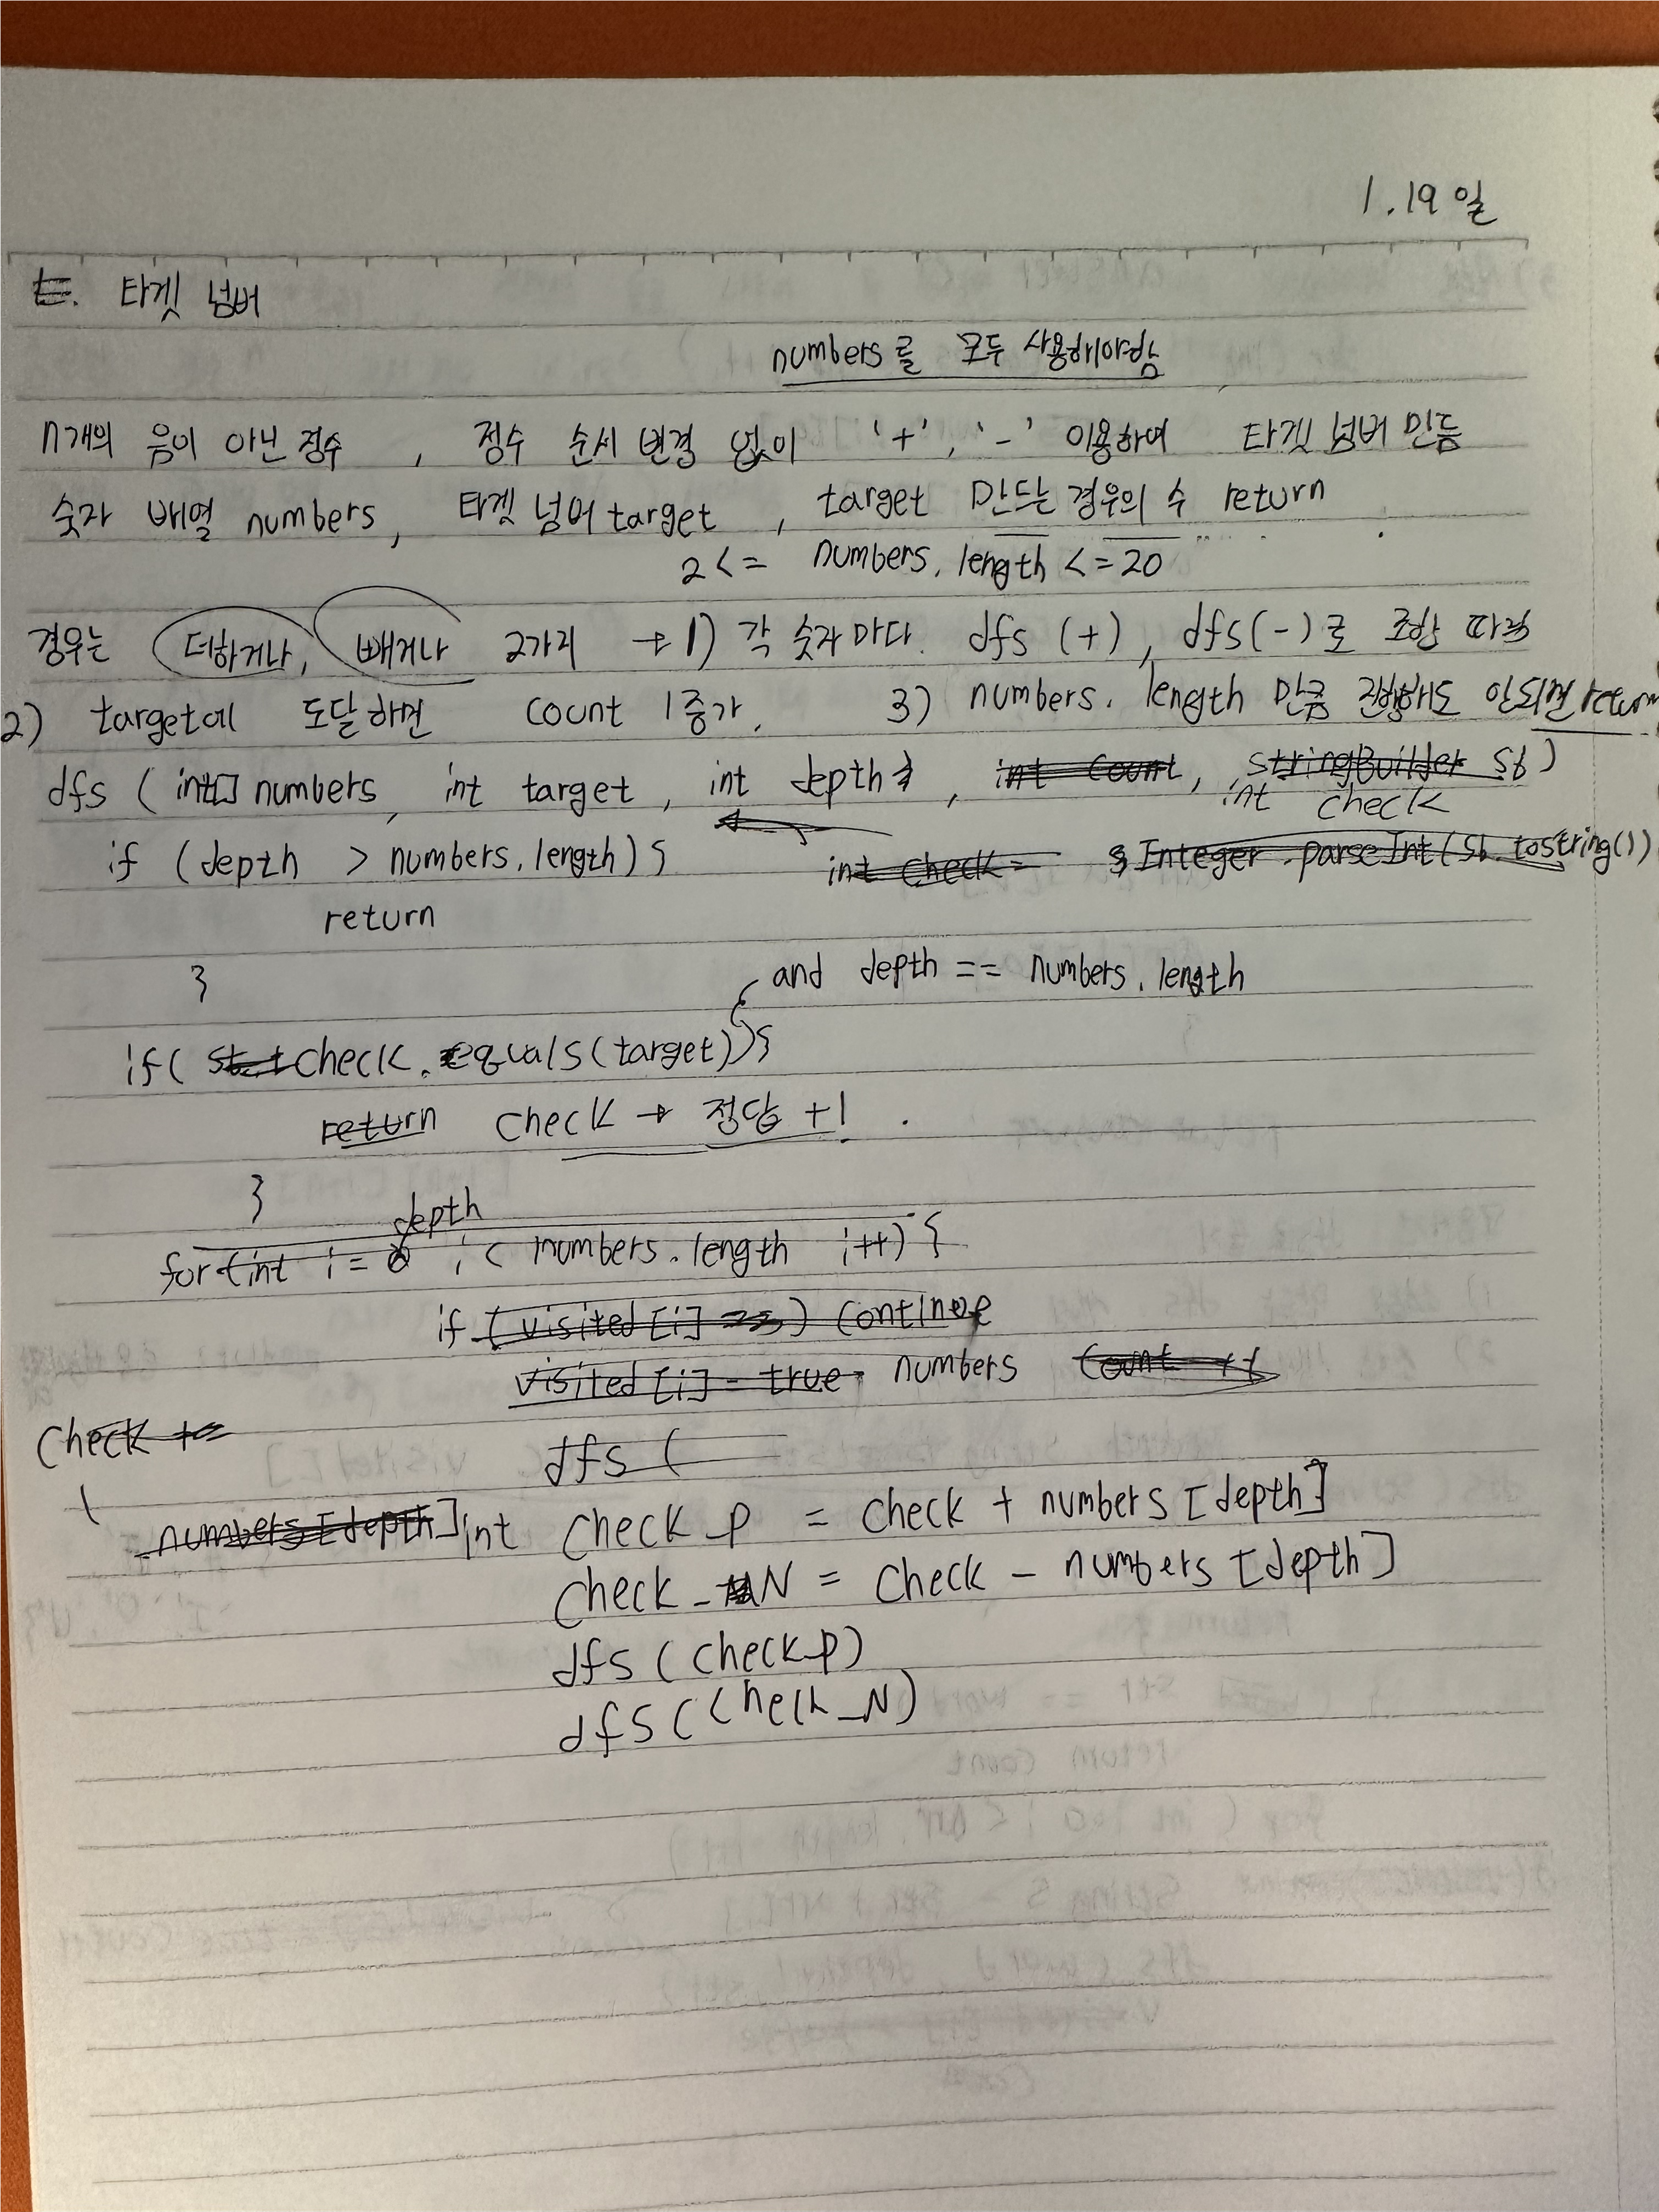 1.19일
E. 타겟 넘버
numbers를 모두 사용해야함
n개의 음이 아닌 정수 , 정수 순서 변경 없이 '+', '-' 이용하여 타겟 넘버 만듬
숫자 배열 numbers, 타겟 넘버 target , target 만드는 경우의 수 return
2 <= numbers.length <= 20
경우는 더하거나, 빼거나 2가지 → 1) 각 숫자마다. dfs (+), dfs(-)로 조합
2) target에 도달하면 count 1증가. 3) numbers.length 만큼 진행해도 안되면 return
dfs ( int[] numbers, int target, int depth , int count, StringBuilder sb )
int check
if (depth > numbers.length) { int check = Integer.parseInt(sb.toString())
return
}
and depth == numbers.length
if( check.equals(target)){
return check → 정답 +1 .
}
depth
for (int i = 0 i < numbers.length i++) {
if ( visited [i] ) continue
visited [i] = true numbers count ++
check +=
dfs (
numbers [depth] int check_p = check + numbers [depth]
check_N = check - numbers [depth]
dfs ( check_p)
dfs ( check_N)